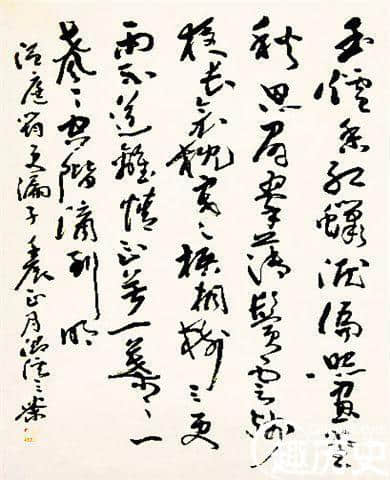 玉爐香紅蠟淚偏照畫堂
秋思眉翠薄鬢雲殘
夜長衾枕寒梧桐樹三更
雨不道離情正苦一葉々一
聲々空階滴到明
温庭筠更漏子 正月
趣历史